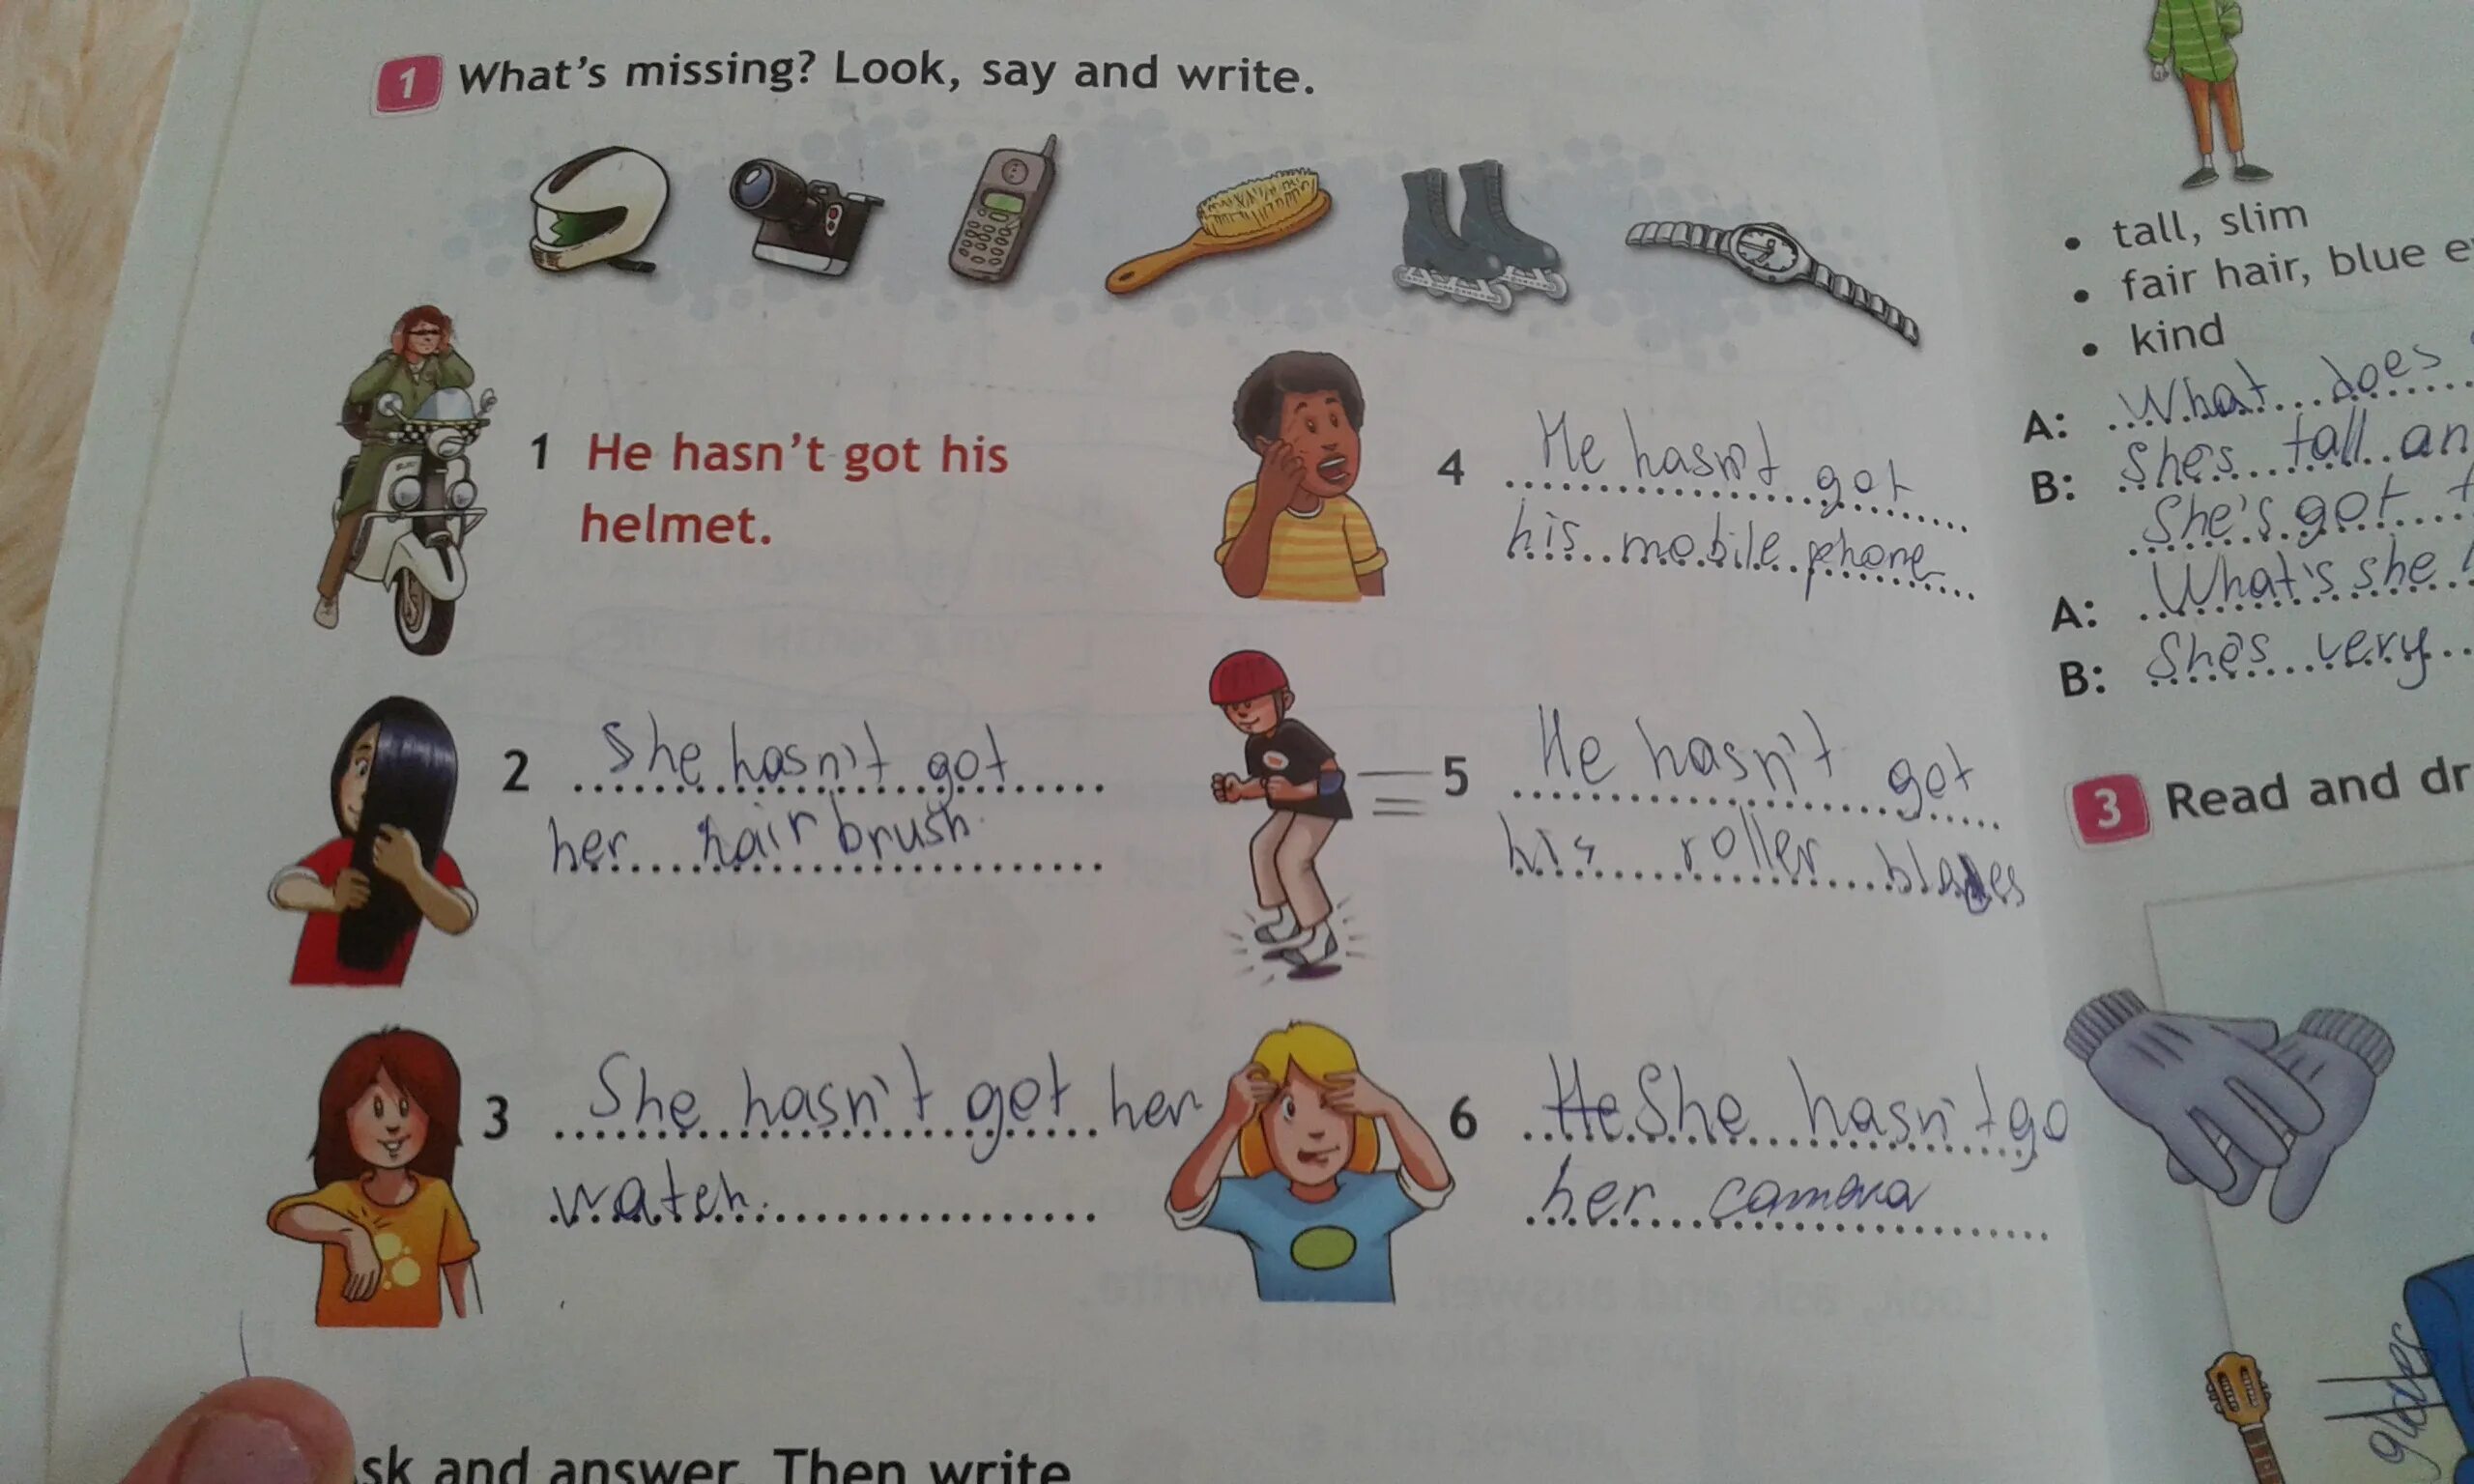 1 What's missing? Look, say and write.
1 He hasn't got his
helmet.
2 She hasn't got
her hair brush.
3 She hasn't got her
watch.
4 He hasn't got
his mobile phone
5 He hasn't got
his roller blades
6 He She hasn't go
her camera
sk and answer. Then write
• tall, slim
• fair hair, blue e
• kind
A: What does
B: She's tall an
She's got
A: What's she
B: She's very
3 Read and dr